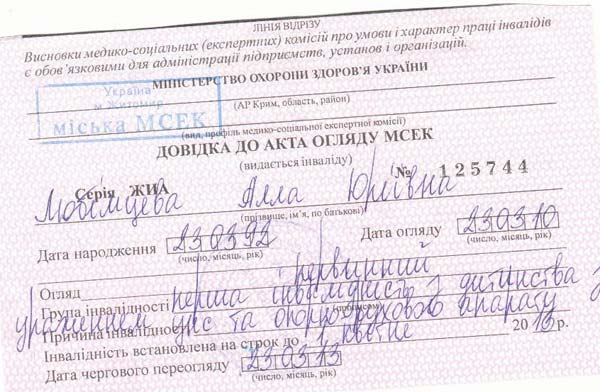 ЛІНІЯ ВІДРІЗУ
Висновки медико-соціальних (експертних) комісій про умови і характер праці інвалідів
є обов'язковими для адміністрації підприємств, установ і організацій.
МІНІСТЕРСТВО ОХОРОНИ ЗДОРОВ'Я УКРАЇНИ
Україна
м Житомир
міська МСЕК
(АР Крим, область, район)
(вид, профіль медико-соціальної експертної комісії)
ДОВІДКА ДО АКТА ОГЛЯДУ МСЕК
(видається інваліду)
Серія ЖИА № 125744
Любімцева Алла Юріївна
(прізвище, ім'я, по батькові)
Дата народження 230392 Дата огляду 230310
(число, місяць, рік) (число, місяць, рік)
Огляд первинний
Група інвалідності перша і інвалідність з дитинства з
Причина інвалідності ураженням цнс та опорно-рухового апарату
Інвалідність встановлена на строк до 1 квітня 2013 р.
Дата чергового переогляду 230313
(число, місяць, рік)